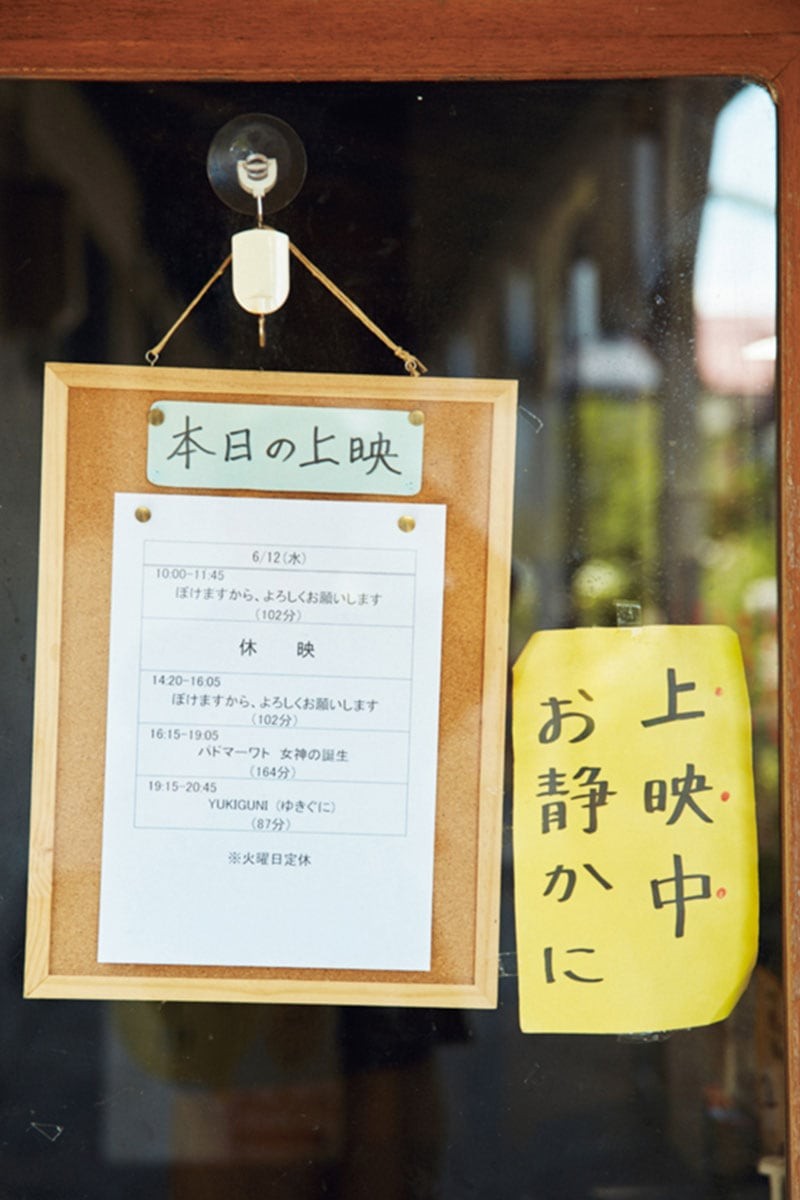 本日の上映
6/12(水)
10:00-11:45
ぼけますから、よろしくお願いします
(102分)
休　映
14:20-16:05
ぼけますから、よろしくお願いします
(102分)
16:15-19:05
パドマーワト 女神の誕生
(164分)
19:15-20:45
YUKIGUNI (ゆきぐに)
(87分)
※火曜日定休
上映中
お静かに